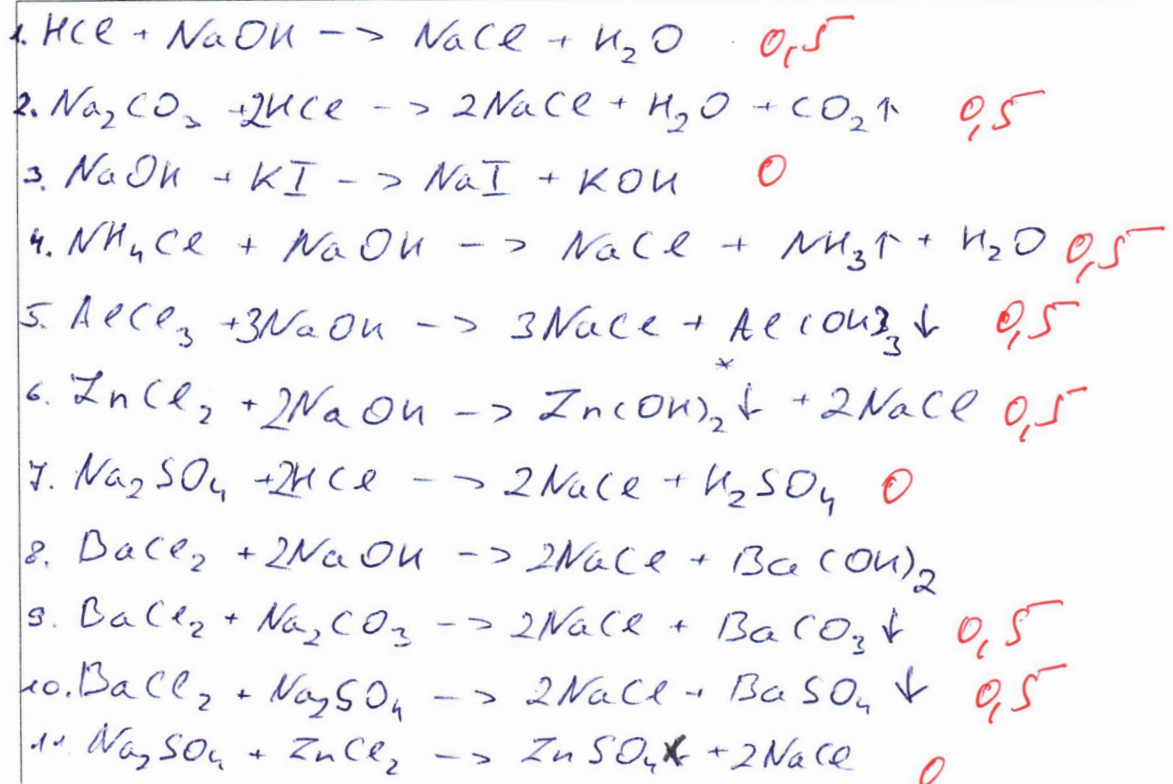 1. HCl + NaOH --> NaCl + H₂O 0,5
2. Na₂CO₃ + 2HCl --> 2NaCl + H₂O + CO₂↑ 0,5
3. NaOH + KI --> NaI + KOH 0
4. NH₄Cl + NaOH --> NaCl + NH₃↑ + H₂O 0,5
5. AlCl₃ + 3NaOH --> 3NaCl + Al(OH)₃↓ 0,5
6. ZnCl₂ + 2NaOH --> Zn(OH)₂↓ + 2NaCl 0,5
7. Na₂SO₄ + 2HCl --> 2NaCl + H₂SO₄ 0
8. BaCl₂ + 2NaOH --> 2NaCl + Ba(OH)₂
9. BaCl₂ + Na₂CO₃ --> 2NaCl + BaCO₃↓ 0,5
10. BaCl₂ + Na₂SO₄ --> 2NaCl + BaSO₄↓ 0,5
11. Na₂SO₄ + ZnCl₂ --> ZnSO₄ + 2NaCl 0